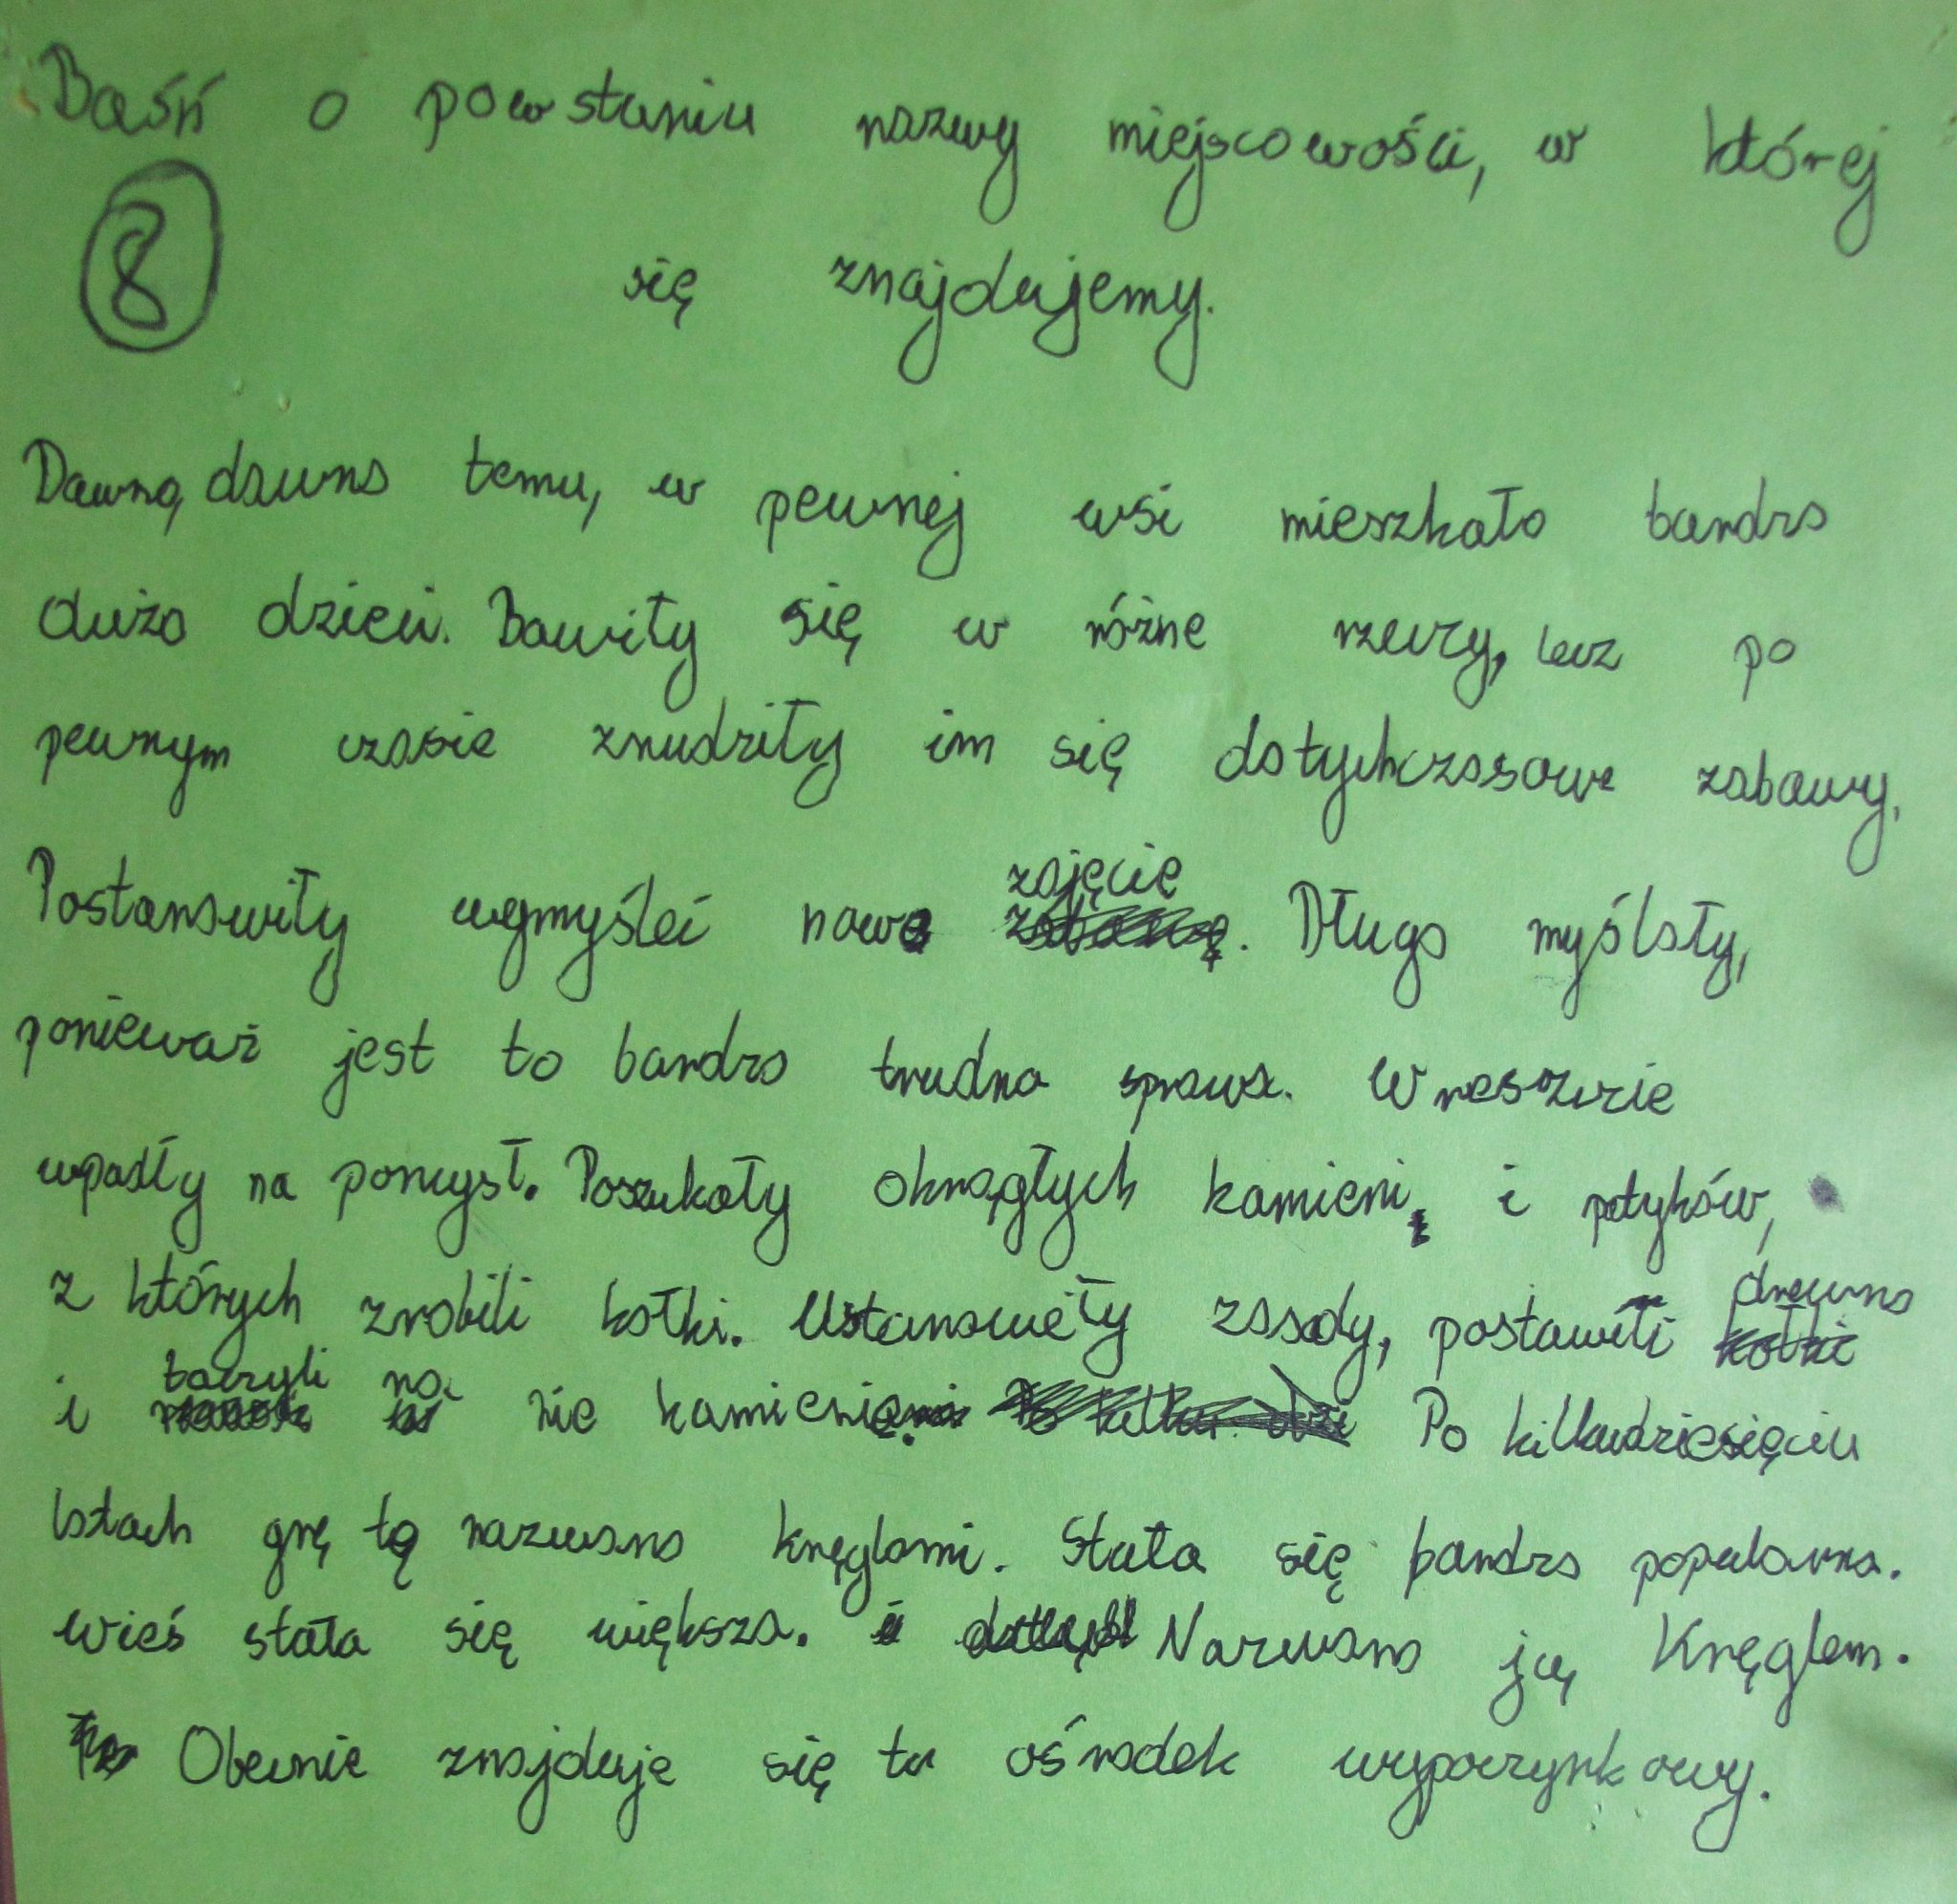 Baśń o powstaniu nazwy miejscowości, w której
8
się znajdujemy.
Dawno, dawno temu, w pewnej wsi mieszkało bardzo
dużo dzieci. Bawiły się w różne rzeczy, lecz po
pewnym czasie znudziły im się dotychczasowe zabawy.
Postanowiły wymyśleć nowe zajęcie. Długo myślały,
ponieważ jest to bardzo trudna sprawa. Wreszcie
wpadły na pomysł. Poszukały okrągłych kamieni i patyków,
z których zrobili kołki. Ustanowiły zasady, postawili drewno
i toczyli na nie kamienie. Po kilkudziesięciu
latach grę tą nazwano kręglami. Stała się bardzo popularna.
Wieś stała się większa. Nazwano ją Kręglem.
Obecnie znajduje się tu ośrodek wypoczynkowy.